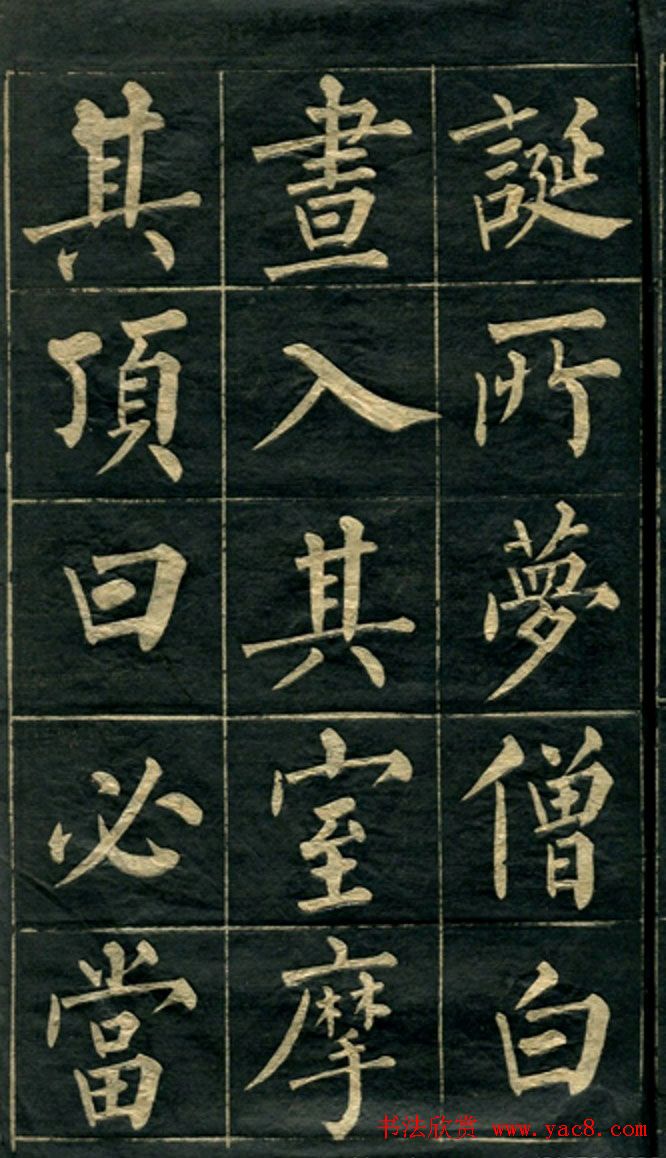 誕所夢僧白
晝入其室摩
其頂曰必當
书法欣赏 www.yac8.com